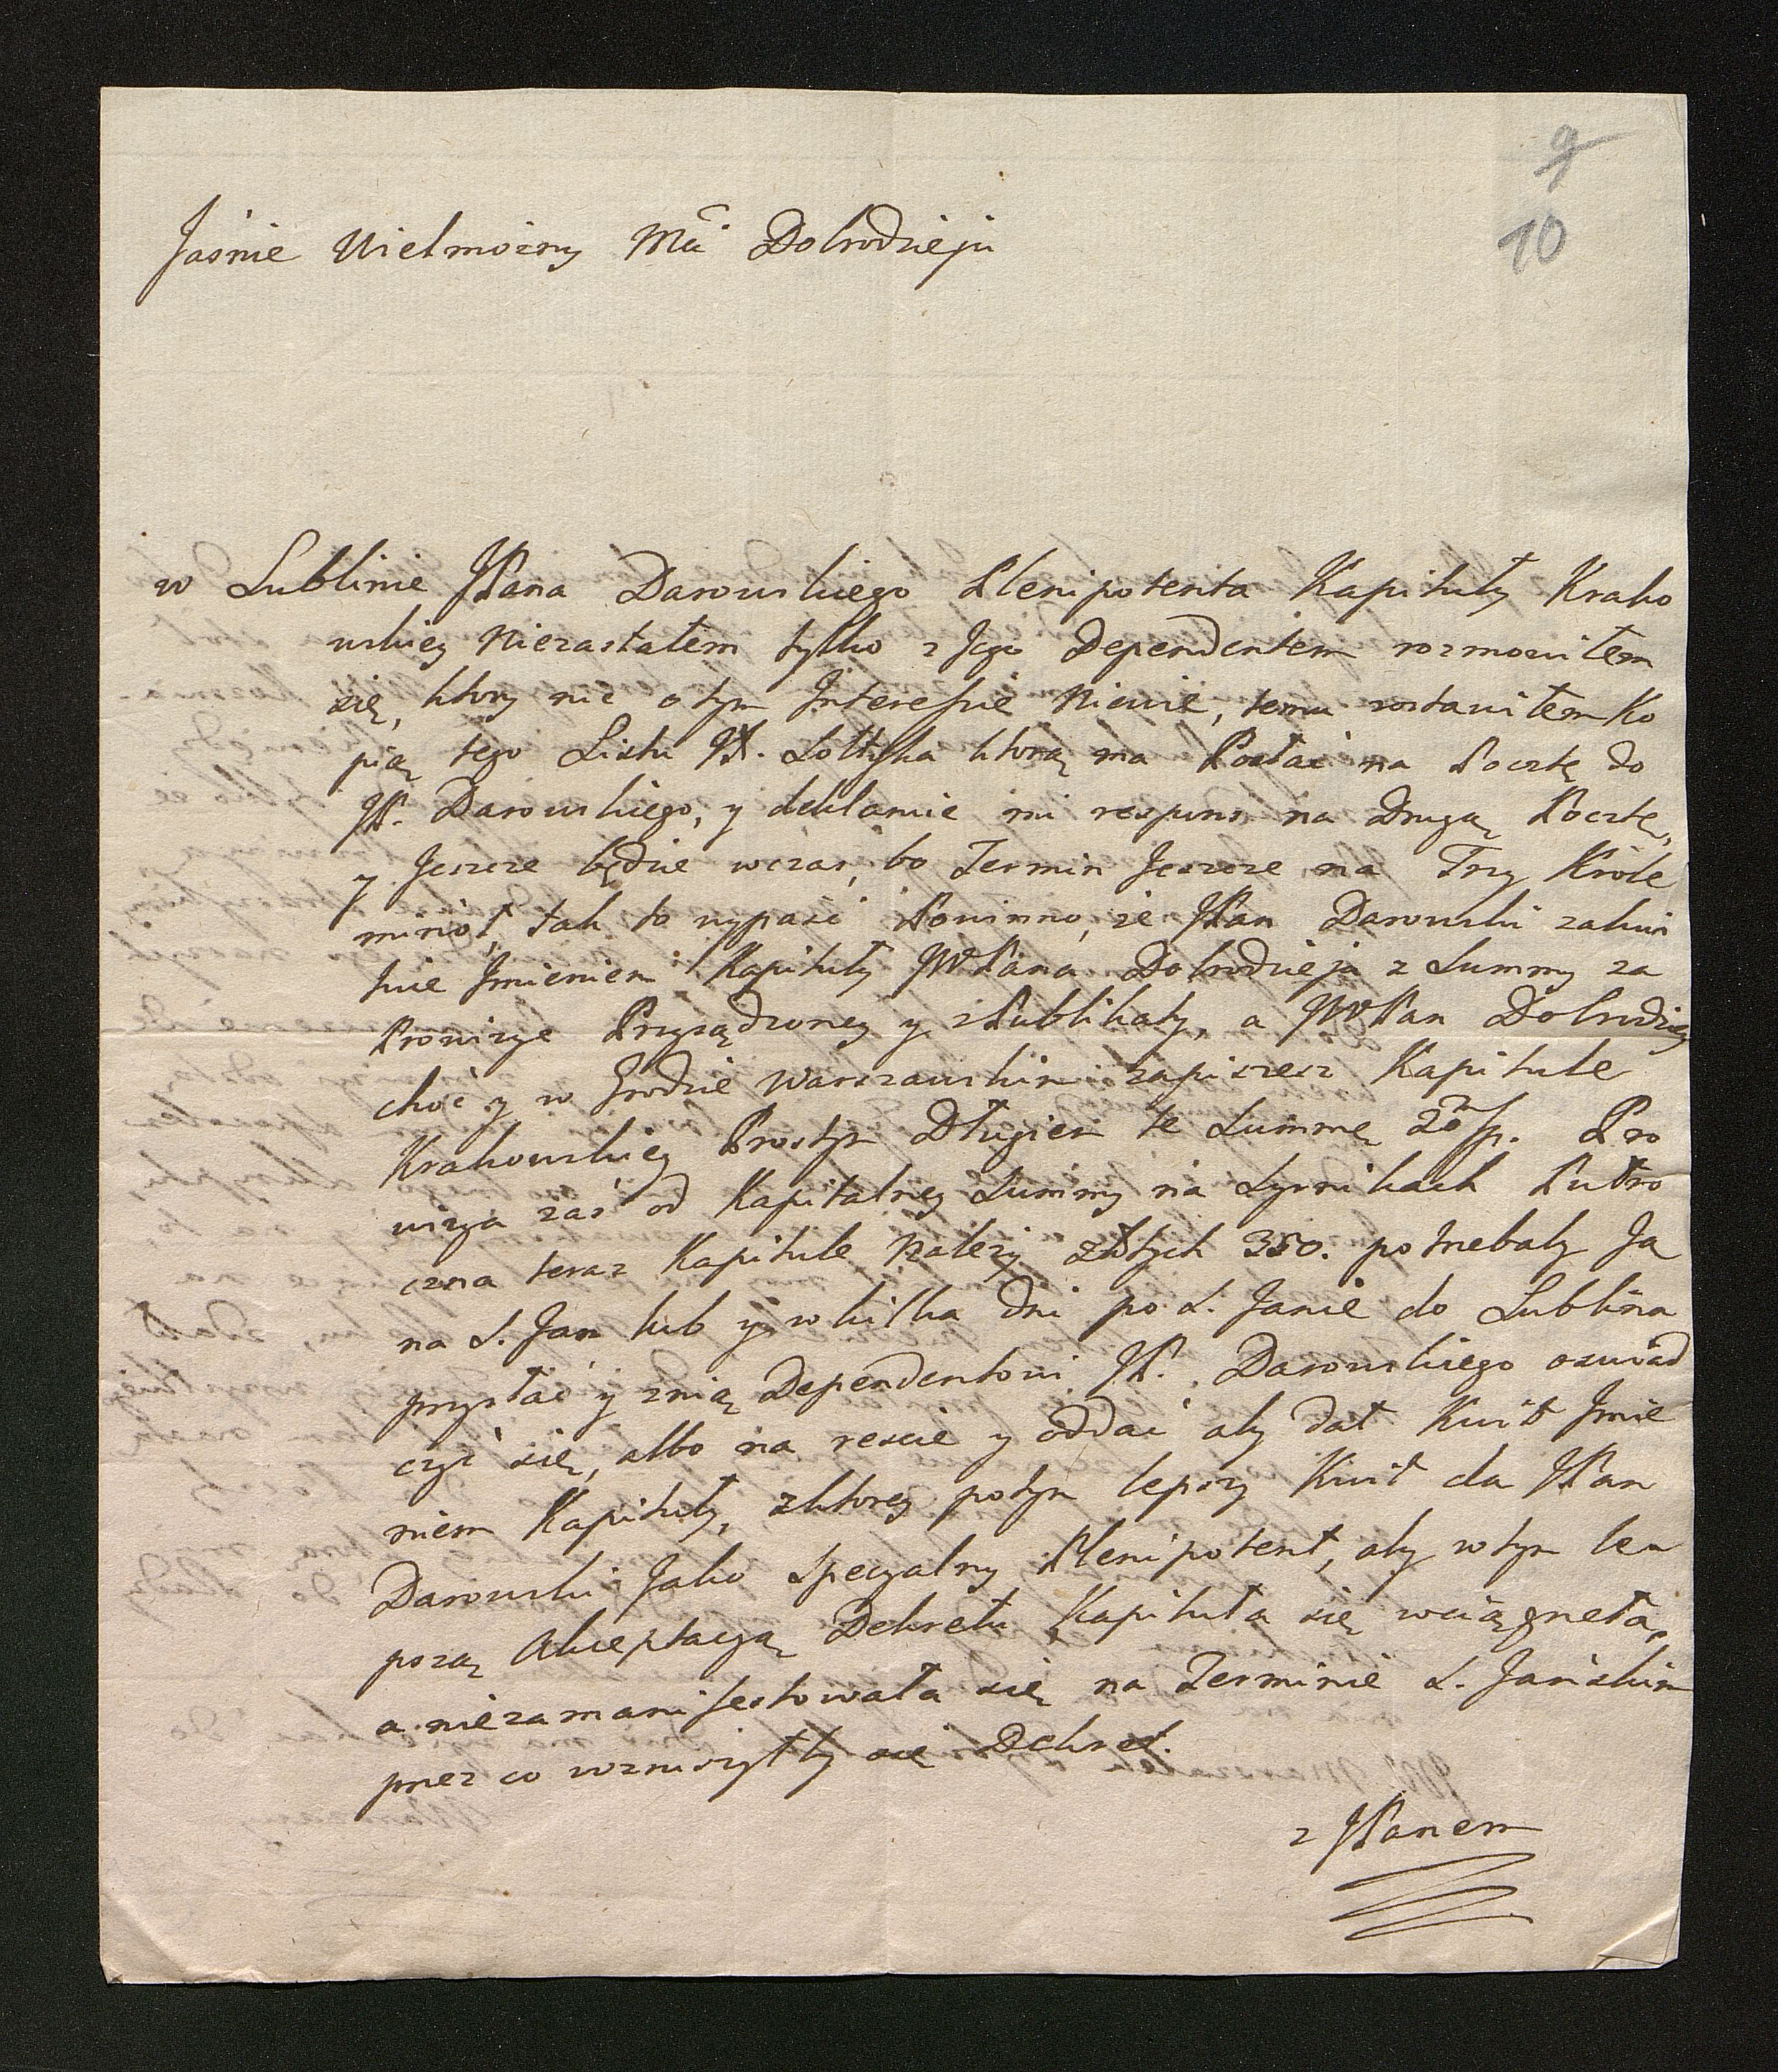 9
10
Jaśnie Wielmożny Mci Dobrodzieju
w Lublinie JPana Darowskiego Plenipotenta Kapituły Krako
wskiey niezastałem tylko z Jego Dependentem rozmowiłem
się, ktory nic otym Interessie niewie, temu zostawiłem Ko
pią tego Listu JP. Sołtyka ktorą ma Posłać na Pocztę do
JP. Darowskiego, y deklamie mi respons na Drugą Pocztę,
y Jeszcze będzie wczas, bo Termin Jeszcze na Trzy Króle
minoł, tak to wypaść Powinno, że JPan Darowski zakwi
tuie Jmieniem Kapituły JWPana Dobrodzieja z Summy za
Prowizye Przysądzoney y zPublikaty, a JWPan Dobrodziey
choć y w Grodzie Warszawskim zapiszesz Kapitule
Krakowskiey Prostym Długiem te Summę 20/m fp. Pro
wizya zaś od Kapitalney Summy na Syrnikach Pułro
czna teraz Kapitule należy złłtych 350. potrzebaby Ją
na S. Jan lub y w kilka dni po S. Janie do Lublina
przysłać y znią Dependentowi JP. Darowskiego oswiad
czyć się, albo na rescie y oddać aby dał Kwit Jmie
niem Kapituły, zktorey potym lepszy Kwit da JPan
Darowski Jako Specyalny Plenipotent, aby wtym le
pszą Akceptacyą Dekretu Kapituła się wciągneła,
a niezamanifestowała się na Terminie S. Jańskim
przez co wzruszyłby się Dekret.
z JPanem